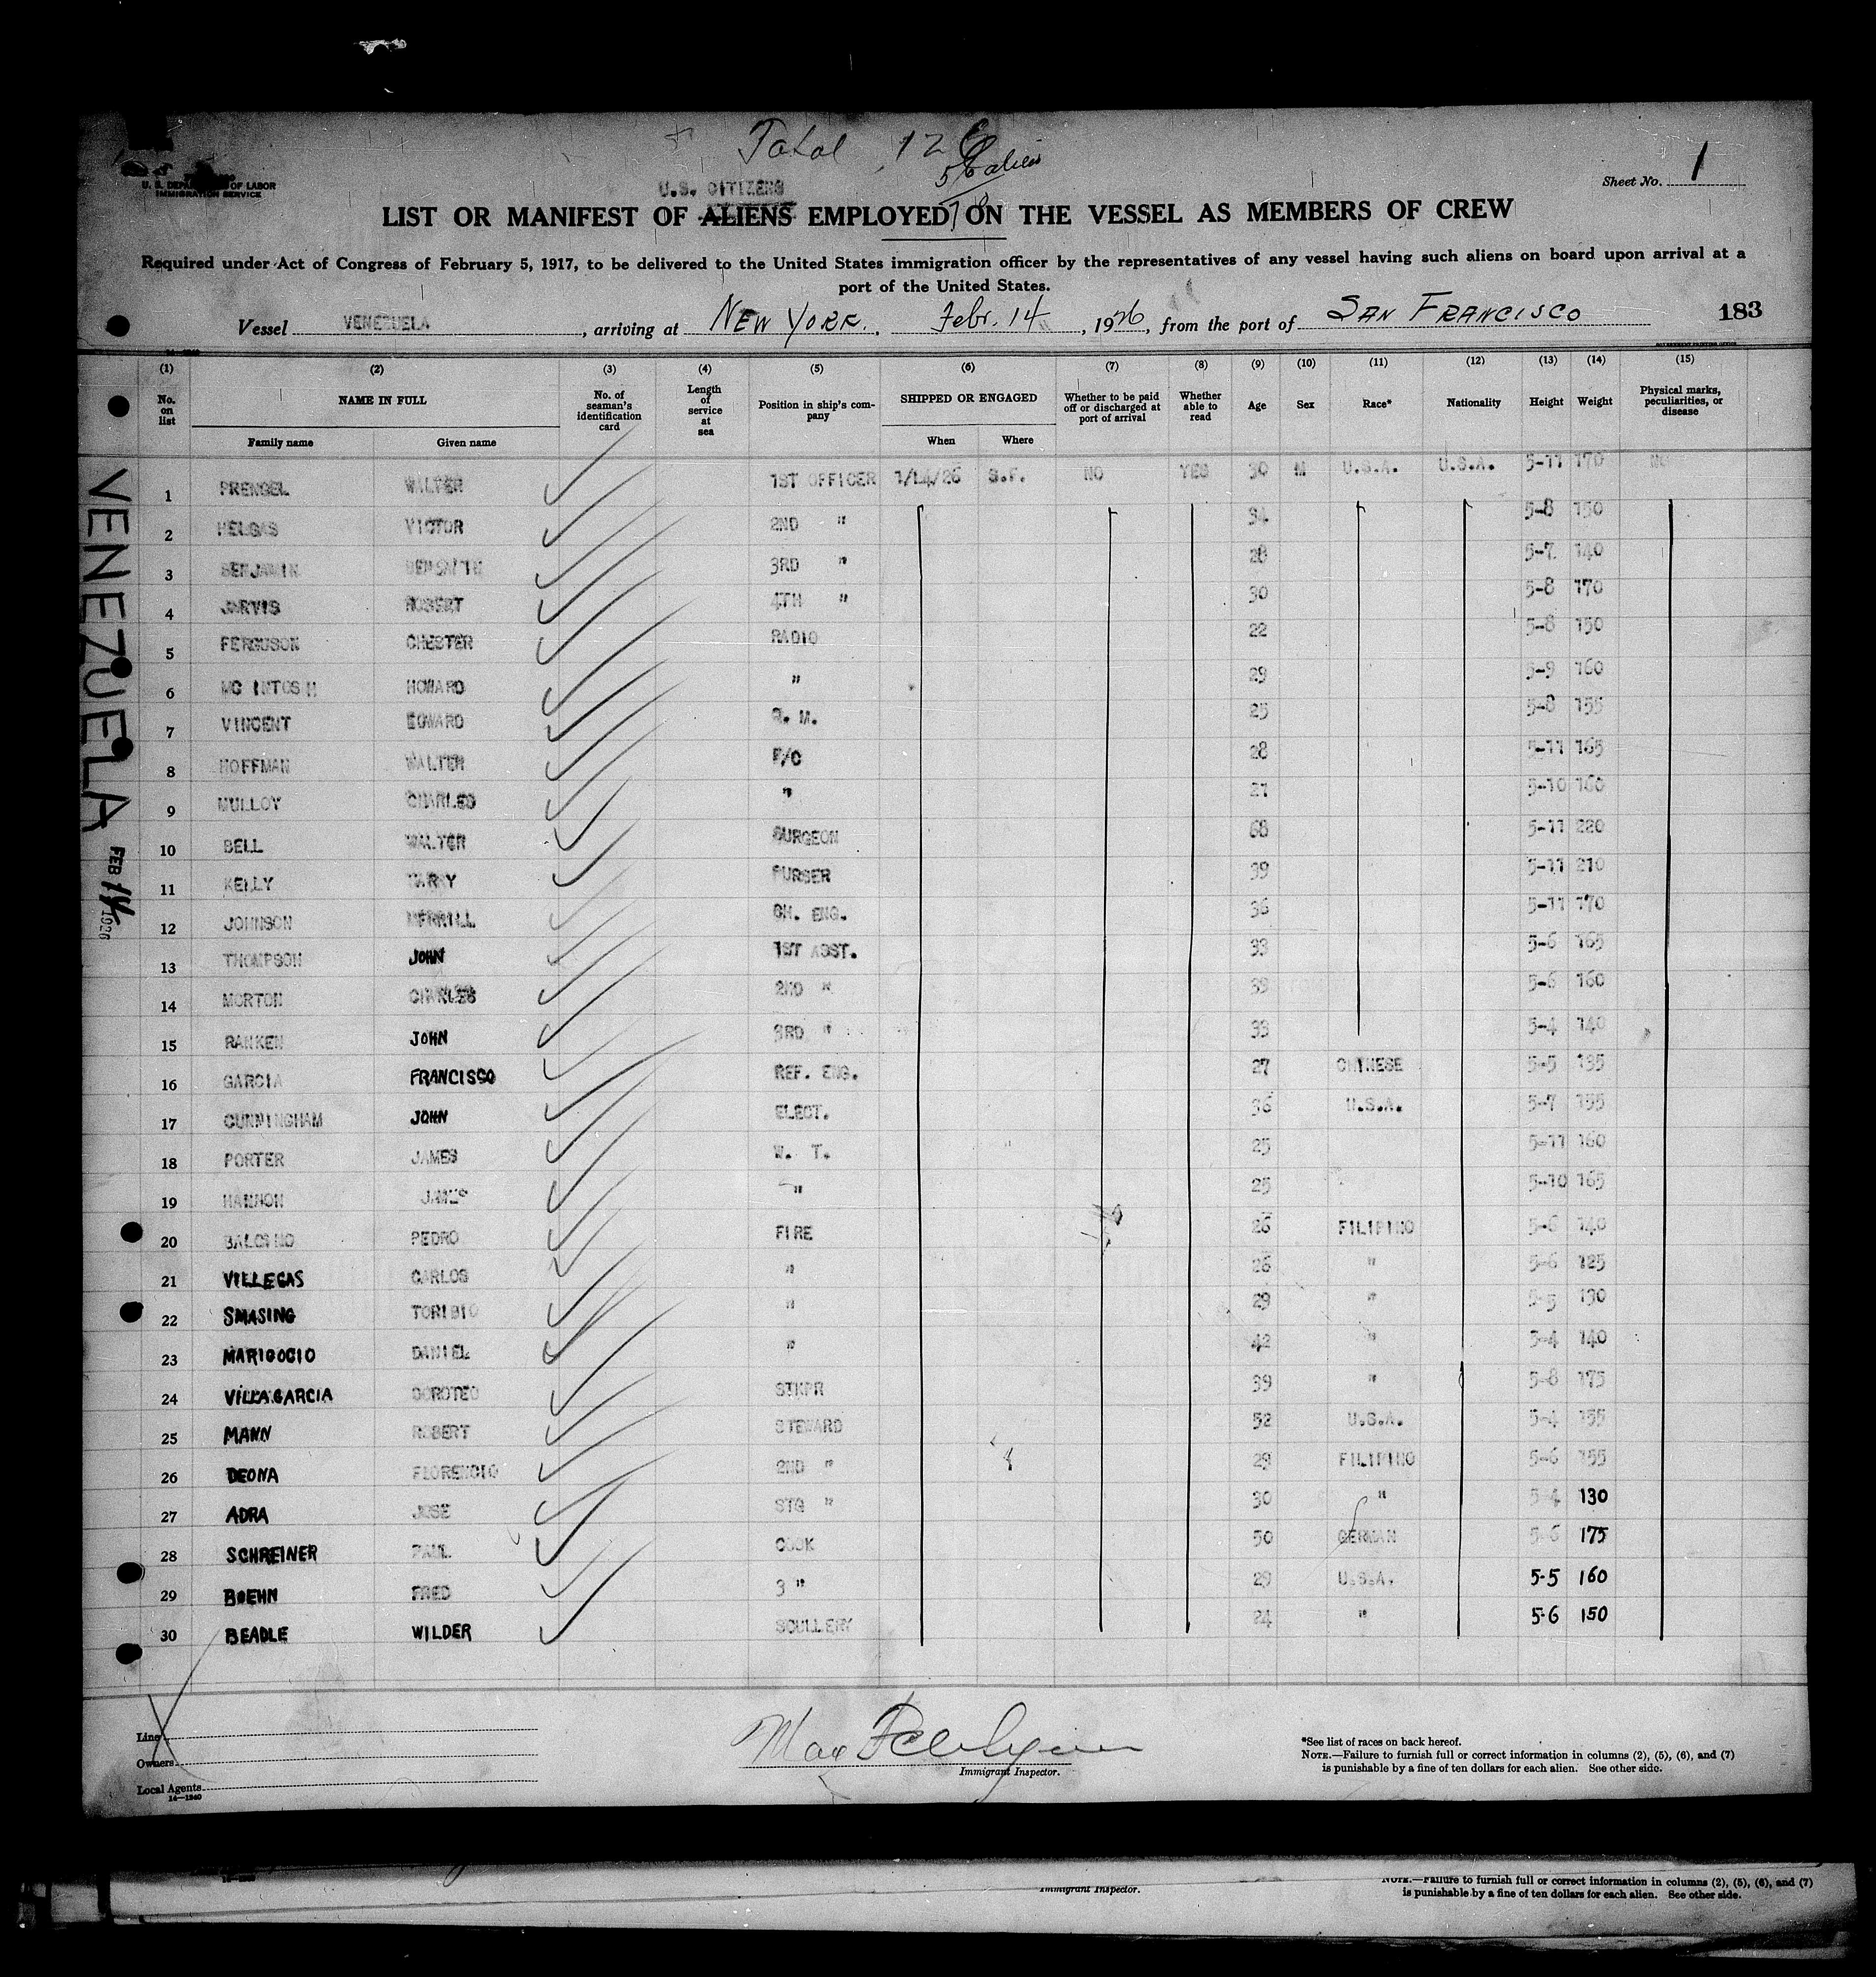 Total 126
56 aliens
78
U. S. DEPARTMENT OF LABOR
IMMIGRATION SERVICE
Sheet No. 1
U.S. CITIZENS
LIST OR MANIFEST OF ALIENS EMPLOYED ON THE VESSEL AS MEMBERS OF CREW
Required under Act of Congress of February 5, 1917, to be delivered to the United States immigration officer by the representatives of any vessel having such aliens on board upon arrival at a
port of the United States.
Vessel VENEZUELA, arriving at NEW YORK, Febr. 14, 1926, from the port of SAN FRANCISCO 183
(1) (2) (3) (4) (5) (6) (7) (8) (9) (10) (11) (12) (13) (14) (15)
No. on list NAME IN FULL No. of seaman's identification card Length of service at sea Position in ship's company SHIPPED OR ENGAGED Whether to be paid off or discharged at port of arrival Whether able to read Age Sex Race* Nationality Height Weight Physical marks, peculiarities, or disease
Family name Given name When Where
1 PRENGEL WALTER 1ST OFFICER 1/14/26 S.F. NO YES 30 M U.S.A. U.S.A. 5-11 170 NO
2 HELGAS VICTOR 2ND " 34 5-8 150
3 BENJAMIN 3RD " 28 5-7 140
4 JARVIS ROBERT 4TH " 30 5-8 170
5 FERGUSON CHESTER RADIO 22 5-8 150
6 MC INTOSH HOWARD " 29 5-9 160
7 VINCENT EDWARD Q. M. 25 5-8 155
8 HOFFMAN WALTER P/C 28 5-11 165
9 MULLOY CHARLES " 21 5-10 160
10 BELL WALTER SURGEON 68 5-11 220
11 KELLY HARRY PURSER 39 5-11 210
12 JOHNSON MERRILL CH. ENG. 36 5-11 170
13 THOMPSON JOHN 1ST ASST. 33 5-6 165
14 MORTON CHARLES 2ND " 39 5-6 160
15 RANKEN JOHN 3RD " 33 5-4 140
16 GARCIA FRANCISCO REF. ENG. 27 CHINESE 5-5 135
17 CUNNINGHAM JOHN ELECT. 36 U.S.A. 5-7 155
18 PORTER JAMES W. T. 25 5-11 160
19 HANNON JAMES " 25 5-10 165
20 BALCINO PEDRO FIRE 26 FILIPINO 5-6 140
21 VILLEGAS CARLOS " 26 " 5-6 125
22 SMASING TORIBIO " 29 " 5-5 130
23 MARIGOCIO DANIEL " 42 " 5-4 140
24 VILLAGARCIA DOROTEO STKPR 39 " 5-8 175
25 MANN ROBERT STEWARD 52 U.S.A. 5-4 155
26 DEONA FLORENCIO 2ND " 29 FILIPINO 5-6 155
27 ADRA JOSE STG " 30 " 5-4 130
28 SCHREINER PAUL COOK 50 GERMAN 5-6 175
29 BOEHN FRED 3 " 29 U.S.A. 5-5 160
30 BEADLE WILDER SCULLERY 24 " 5-6 150
VENEZUELA FEB 14 1926
Line
Owners
Local Agents
14—1240
Max
Immigrant Inspector.
*See list of races on back hereof.
NOTE.—Failure to furnish full or correct information in columns (2), (5), (6), and (7)
is punishable by a fine of ten dollars for each alien. See other side.
Immigrant Inspector.
NOTE.—Failure to furnish full or correct information in columns (2), (5), (6), and (7)
is punishable by a fine of ten dollars for each alien. See other side.